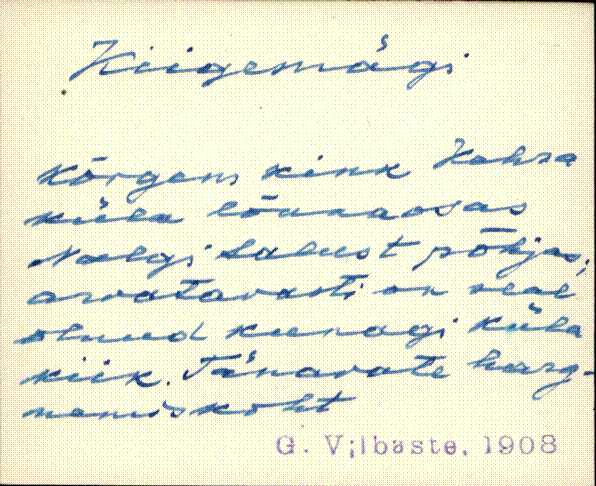 Kiigemägi.
Kõrgem kink Kahsa
küla lõunaosas
Naelgi talust põhjas,
arvatavasti on seal
olnud kunagi küla
kiik. Tänavate harg-
nemiskoht
G. Vilbaste, 1908